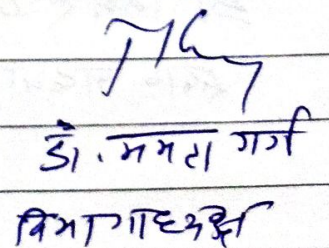 डॉ. ममता गर्ग
विभागाध्यक्ष